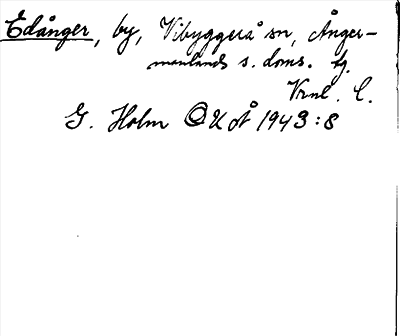 Edånger, by, Vibyggerå sn, Ånger-
manlands s. doms. hj.
Vrnl. C.
G. Holm OUÅ 1943:8